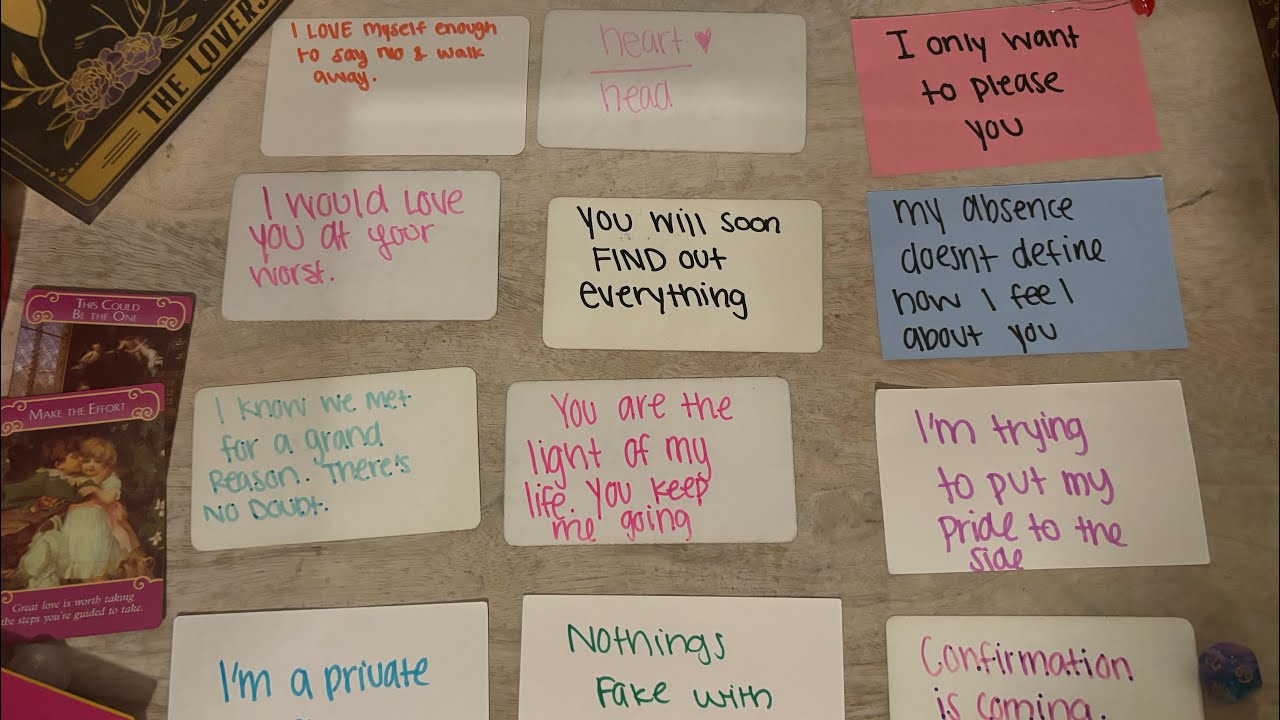 THE LOVERS
I LOVE myself enough
to say no & walk
away.
heart
head
I only want
to please
you
I would Love
you at your
worst.
You will soon
FIND out
everything
my absence
doesnt define
how I feel
about you
THIS COULD
BE THE ONE
MAKE THE EFFORT
Great love is worth taking
the steps you're guided to take.
I know we met
for a grand
Reason. There's
NO DOUBT.
You are the
light of my
life. You keep
me going
I'm trying
to put my
pride to the
side
I'm a private
Nothings
Fake with
Confirmation
is coming.